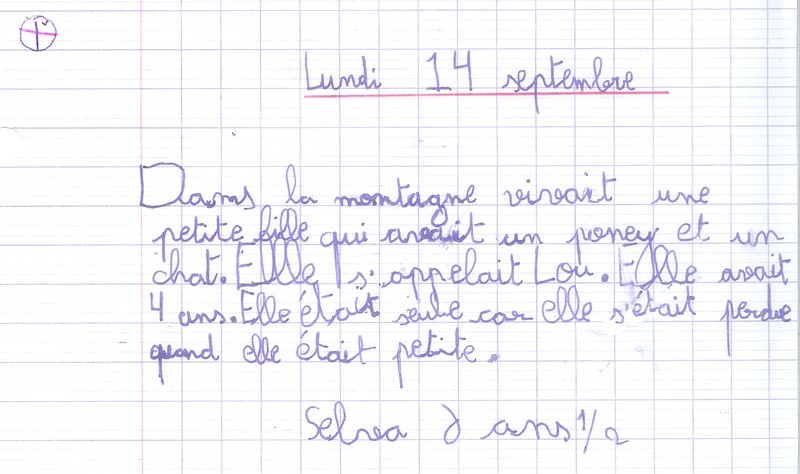 Lundi 14 septembre
Dans la montagne vivait une
petite fille qui avait un poney et un
chat. Elle s'appelait Lou. Elle avait
4 ans. Elle était seule car elle s'était perdue
quand elle était petite.
ans 1/2